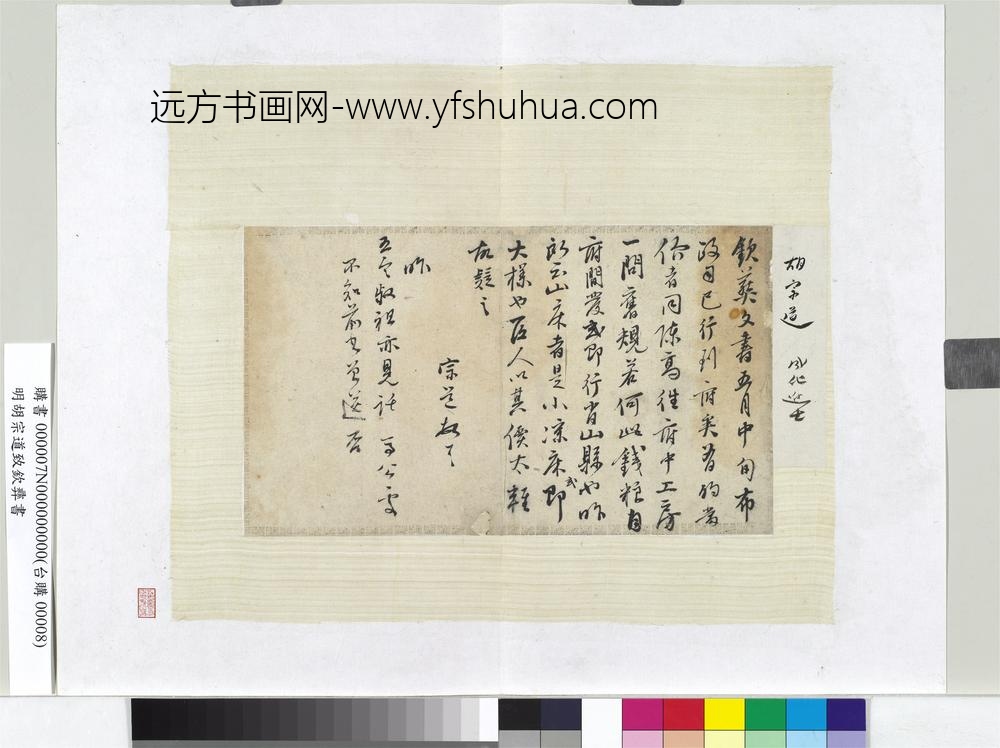 远方书画网-www.yfshuhua.com
胡宗道 成化進士
欽彝文書五月中旬布
政司已行到府矣着的當
伶者同陳高往府中工房
一問舊規若何此錢糧自
府間發或即行肖山縣也昨
所云山床者是小凉床或即
大樣也匠人以其價太輕
故疑之
宗道報了
昨
五令叔祖亦見託 公
不知前書曾送否
購書 000007N000000000(台購 00008)
明胡宗道致欽彝書